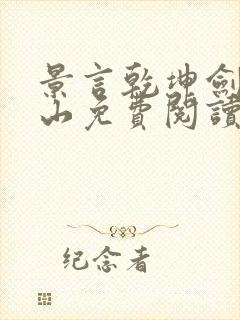 景言乾坤劍
山免費閱讀
纪念者